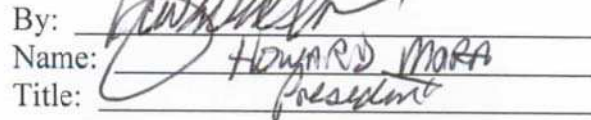 By:
Name: HOWARD MORA
Title: President